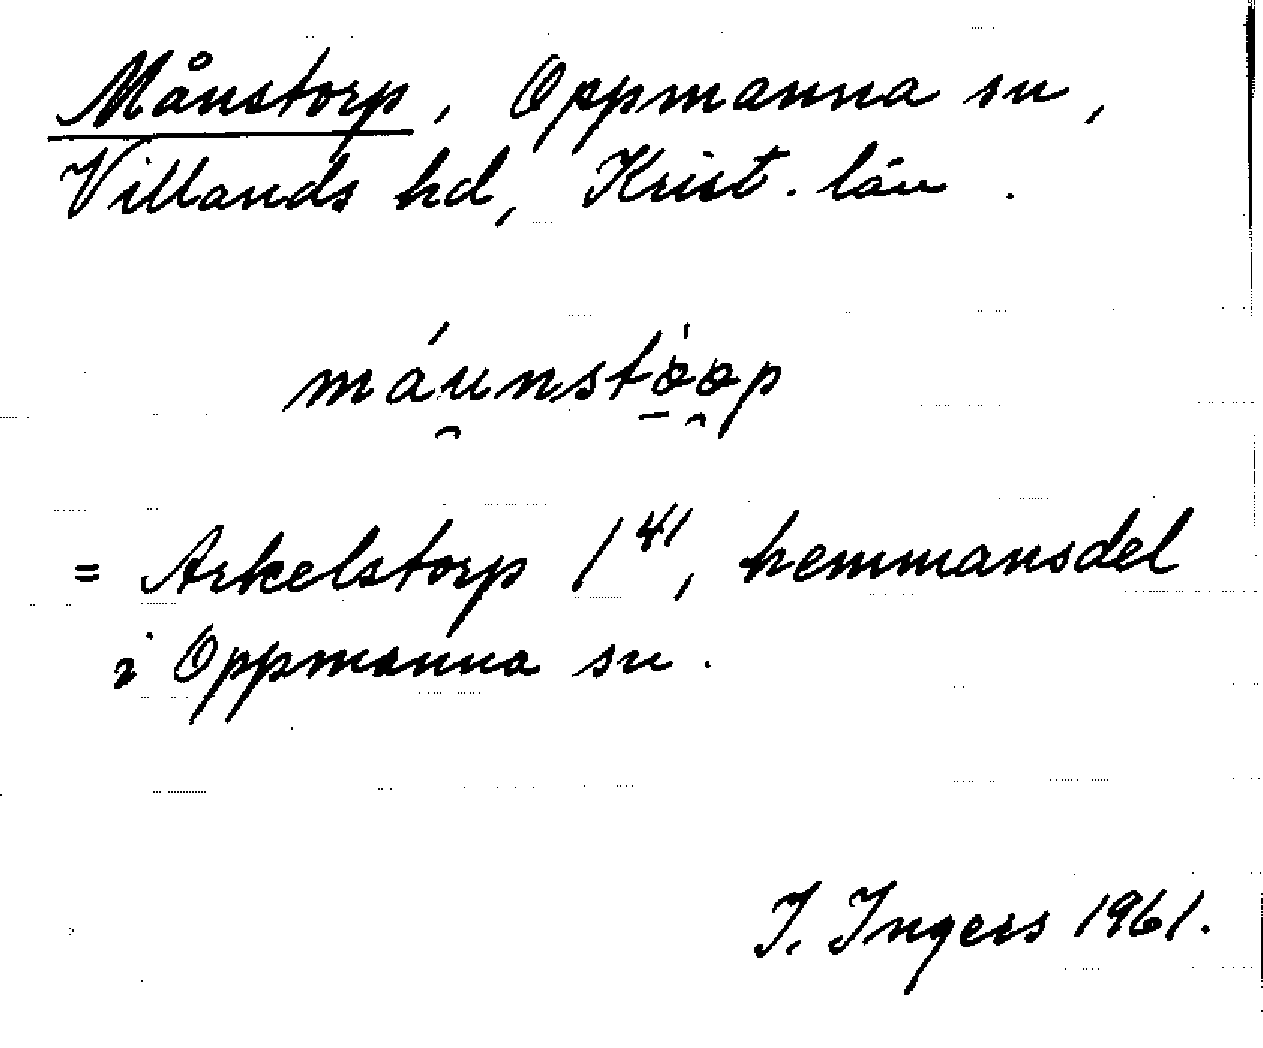 Månstorp, Oppmanna sn,
Villands hd, Krist. län.
máu̯nstò̠ɔ̯p
= Arkelstorp 1⁴¹, hemmansdel
i Oppmanna sn.
I. Ingers 1961.